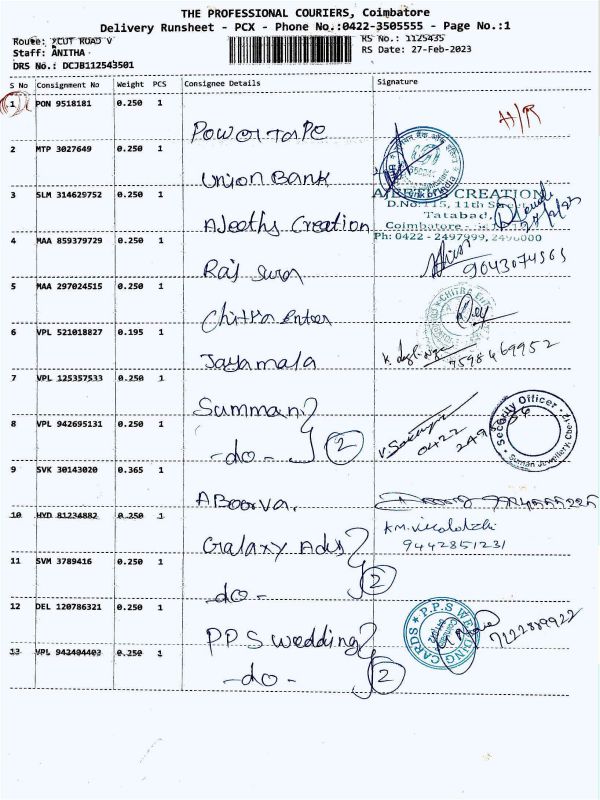 THE PROFESSIONAL COURIERS, Coimbatore
Delivery Runsheet - PCX - Phone No.:0422-3505555 - Page No.:1
Route: XCUT ROAD V
RS No.: 1125435
Staff: ANITHA
RS Date: 27-Feb-2023
DRS No.: DCJB112543501
S No Consignment No Weight PCS Consignee Details Signature
1 PON 9518181 0.250 1 Power Tape H/R
2 MTP 3027649 0.250 1 Union Bank
3 SLM 314629752 0.250 1 Ajeeths Creation
CREATION
D.No:115, 11th Street
Tatabad,
Coimbatore -
Ph: 0422 - 2497999,
4 MAA 859379729 0.250 1 Raj
9043074565
5 MAA 297024515 0.250 1 Chitra Enter
6 VPL 521018827 0.195 1 Jayamala
9598469952
7 VPL 125357533 0.250 1 Summan
8 VPL 942695131 0.250 1 -do- 2
0422
Security Officer
Suman Jewellery
9 SVK 30143020 0.365 1 ABoorva.
10 HYD 81234882 0.250 1 Galaxy Ads
K.M.
9442851231
11 SVM 3789416 0.250 1 -do- 2
12 DEL 120786321 0.250 1 PPS wedding
P.P.S WEDDING CARDS
13 VPL 942404403 0.250 1 -do- 2